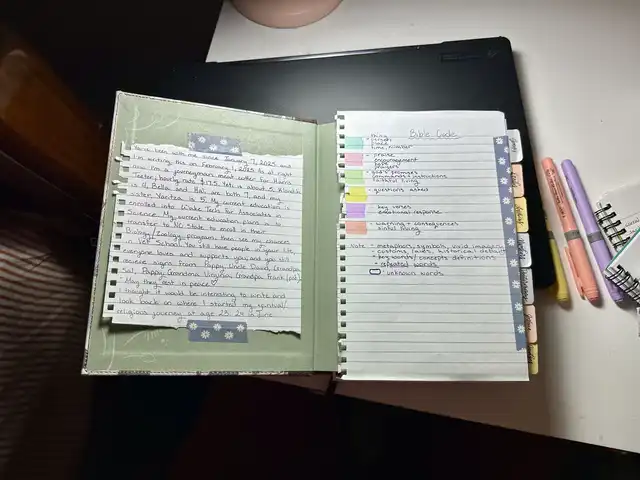 been with me since January 7, 2025 and
I'm writing this on February 1, 2025 So at right
now I'm a journeyman meat cutter for Harris
Teeter, hourly rate $17.5.
is 9, Bella and are both 7, and my
sister, Yaritza is 5. My current education is
enrolled into Wake Tech for Associates in
Science. My current education plan is to
transfer to NC State to enroll in their
Biology/Zoology program, then see my chances
in Vet School. You still have people in your life,
everyone loves and supports you, and you still
receive signs from Pappy, Uncle David, Grandpa
Sal, Poppy, Grandma Virginia, Grandpa Frank
May they rest in peace ♡
I thought it would be interesting to write and
look back on where I started my spiritual/
religious journey at age 23. 24 in June
Bible Code
- thing
- place
- time, number
- praise
- encouragement
- prayers
- God's promises
- commands + instructions
- faithful living
- questions asked
- key verses
- emotional response
- warning + consequences
- sinful living
Note - metaphors, symbols, vivid imagery
- customs, laws, historical details
- key words/concepts definitions
- repeated words
- unknown words